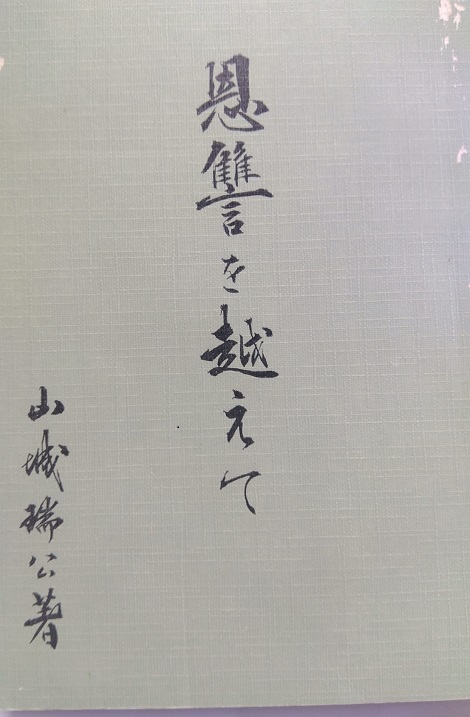 恩讐を越えて
山城瑞公著